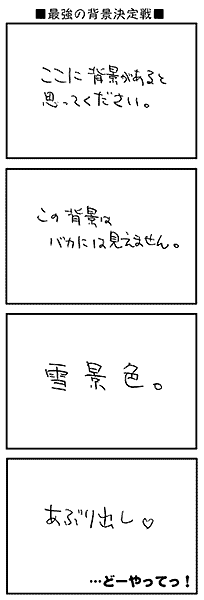 ■最強の背景決定戦■
ここに背景があると
思ってください。
この背景は
バカには見えません。
雪景色。
あぶり出し♡
…どーやってっ!